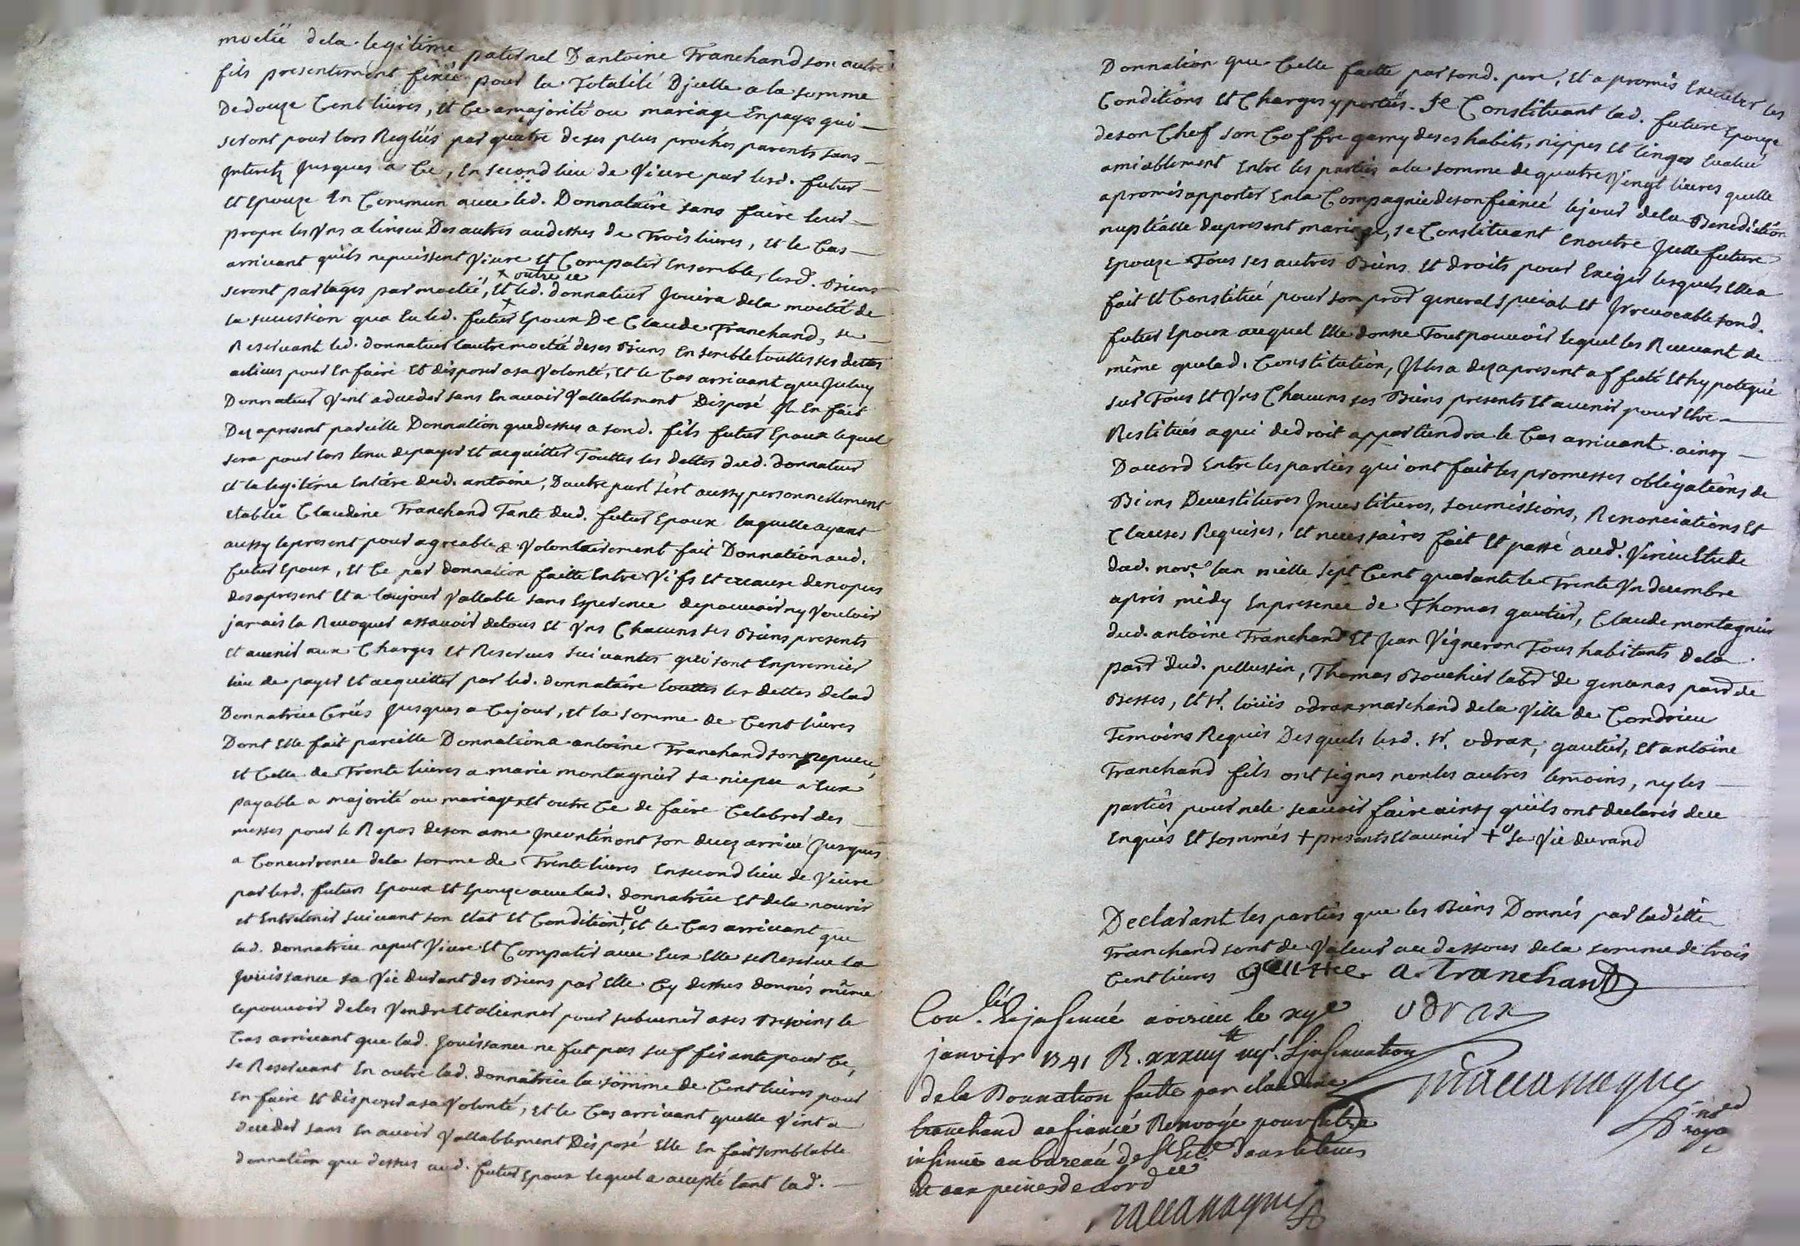 moetié dela legitime paternel D'antoine Franchand son autre
fils presentement fixée pour la Totalité Djcelle a la somme
De douze Cent livres, et Ce a majorité ou mariage En payes qui
seront pour lors Reglés par quatre de ses plus proches parents sans
Jnterets Jusques a Ce, En second lieu de Vivre par lesd. futur
et Epouze En Commun avec led. Donnataire sans faire leur
propre les Uns a linscu Des autres audessus de Trois livres, et le Cas
arrivant quils ne puissent Vivre et Compatir Ensemble, lesd. Biens
seront partages par moetié, + et led. donnateur Jouira dela moetié de
+ outre ce
la sucession qua Eu led. futur Epoux De Claude Franchand, se
Reservant led. donnateur lautre moetié de ses Biens Ensemble touttes ses dettes
actives pour En faire et disposer a sa Volonté, et le Cas arrivant que Jceluy
Donnateur Vint a deceder sans En avoir Vallablement Disposé Jl En fait
Dez apresent pareille Donnation que dessus a sond. fils futur Epoux lequel
sera pour lors tenu de payer et acquitter Touttes les dettes dud. donnateur
et la legitime Entiere dud. antoine, D'autre part s'est aussy personnellement
etablie Claudine Franchand Tante dud. futur Epoux laquelle ayant
aussy le present pour agreable a Volontairement fait Donnation aud.
futur Epoux, et Ce par donnation faitte Entre Vifs et a cause de nopces
des apresent et a toujour Vallable sans Esperence de pouvoir ny Vouloir
jamais la Revoquer assavoir de tous et Uns Chacuns ses Biens presents
et avenir aux Charges et Reserves suivantes qui sont En premier
lieu de payer et acquitter par led. donnataire touttes les dettes de lad
Donnatrice Créés Jusques a Ce jour, et la somme de Cent livres
Dont Elle fait pareille Donnation a antoine Franchand son nepveu,
et Celle de Trente livres a marie montagnier sa niepce a Eux
payable a majorité ou mariage, et outre Ce de faire Celebrer des
messes pour le Repos de son ame Jncontinent son decez arrivé Jusques
a Concurrence dela somme de Trente livres En second lieu de Vivre
par lesd. futurs Epoux et Epouze avec lad. donnatrice et de la nourir
et Entretenir suivant son Etat et Condition, + et le Cas arrivant que
lad. donnatrice ne put Vivre et Compatir avec Eux Elle se Reserve la
Jouissance sa Vie durant des Biens par Elle Cy dessus donnés même
le pouvoir de les Vendre et aliener pour subvenir a ses Besoins le
Cas arrivant que lad. Jouissance ne fut pas suffisante pour Ce,
se Reservant En outre lad. donnatrice la somme de Cent livres pour
En faire et disposer a sa Volonté, et le Cas arrivant quelle Vint a
deceder sans En avoir Vallablement Disposé Elle En fait semblable
donnation que dessus aud. futur Epoux lequel a accepté tant lad.
Donnation que Celle faitte par sond. pere, et a promis Executer les
Conditions et Charges y portées. Se Constituant lad. future Epouze
de son Chef son Coffre garny de ses habits, nippes et linges Evalué
amiablement Entre les parties a la somme de quatre Vingt livres quelle
a promis apporter En la Compagnie de son fiancé le jour dela Benediction
nuptialle du present mariage, se Constituant En outre Jcelle future
Epouze Tous ses autres Biens et droits pour Exiger lesquels Elle a
fait et Constitué pour son pror general special et Jrrevocable sond.
futur Epoux auquel Elle donne Tout pouvoir lequel les Recevant de
même que lad. Constitution, Jl les a dez apresent affecté et hypotequé
sur Tous et Uns Chacuns ses Biens presents et avenir pour Etre
Restitués a qui de droit appartiendra le Cas arrivant. ainsy
D'accord Entre les parties qui ont fait les promesses obligations de
Biens Devestitures Jnvestitures, soumissions, Renonciations et
Clauses Requises, et necessaires fait et passé aud. Virieu Etude
dud. nore lan mille sept Cent quarante le Trente Un decembre
apres midy En presence de Thomas gautier, Claude montagnier
dud. antoine Franchand et Jean Vigneron Tous habitants dela
parr dud. pellussin, Thomas Bouchier labr de gencenas parr de
Besses, et sr. loüis odrax marchand dela Ville de Condrieu
Temoins Requis Desquels lesd. sr. odrax, gautier, et antoine
Franchand fils ont signes non les autres temoins, ny les
parties pour ne le scavoir faire ainsy quils ont declarés de ce
Enquis et sommés + presents et avenir + sa Vie durand
Declarant les parties que les Biens Donnés par lad. ditte
Franchand sont de Valeur au dessous dela somme de trois
Cent livres gautier a. franchand
odrax
Conlé. & jnsinué a virieu le xye
janvier 1741 R.
Ljnsinuation
dela Donnation faitte par claudine
tranchand au fiancé Renvoyé pour Etre
insinuée au bureau de St. Ete. dans le tems
et aux peines de lord